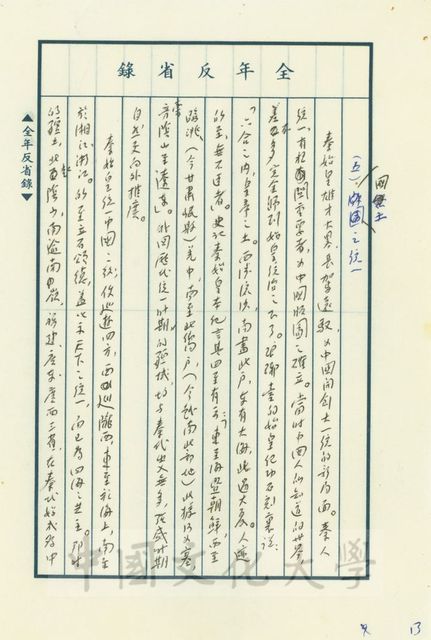 全年反省錄
國疆土
(五)、版圖之統一
秦始皇雄才大畧,長駕遠馭,為中國開創大一統的新局面。秦人
統一有極關重要者,為中國版圖之確立。當時中國人所知道的世界,
差不多完全歸到始皇統治之下了。瑯琊臺的始皇紀功石刻裏說:
「六合之內,皇帝之土。西涉流沙,南盡北戶,東有大海,北過大夏。人跡
所至,無不臣者。」史記秦始皇本紀言其四至有云:「東至海暨朝鮮,西至
臨洮,(今甘肅岷縣)羌中,南至北嚮戶,(今越南北部地)北據河為塞,
並陰山至遼東。」我國歷代統一時期的疆域,皆與秦代出入無多,在盛時期
自然更向外推廣。
秦始皇統一中國之後,供巡遊四方,西巡隴西,東至於海上,南至
於湘江浙江。所至立石頌德,蓋以示天下之統一,而已為四海之共主。那時
的疆土,北起陰山,南逾南嶺,福建、廣東、廣西三省,在秦代始成為中
▲全年反省錄▼
中國文化大學
13